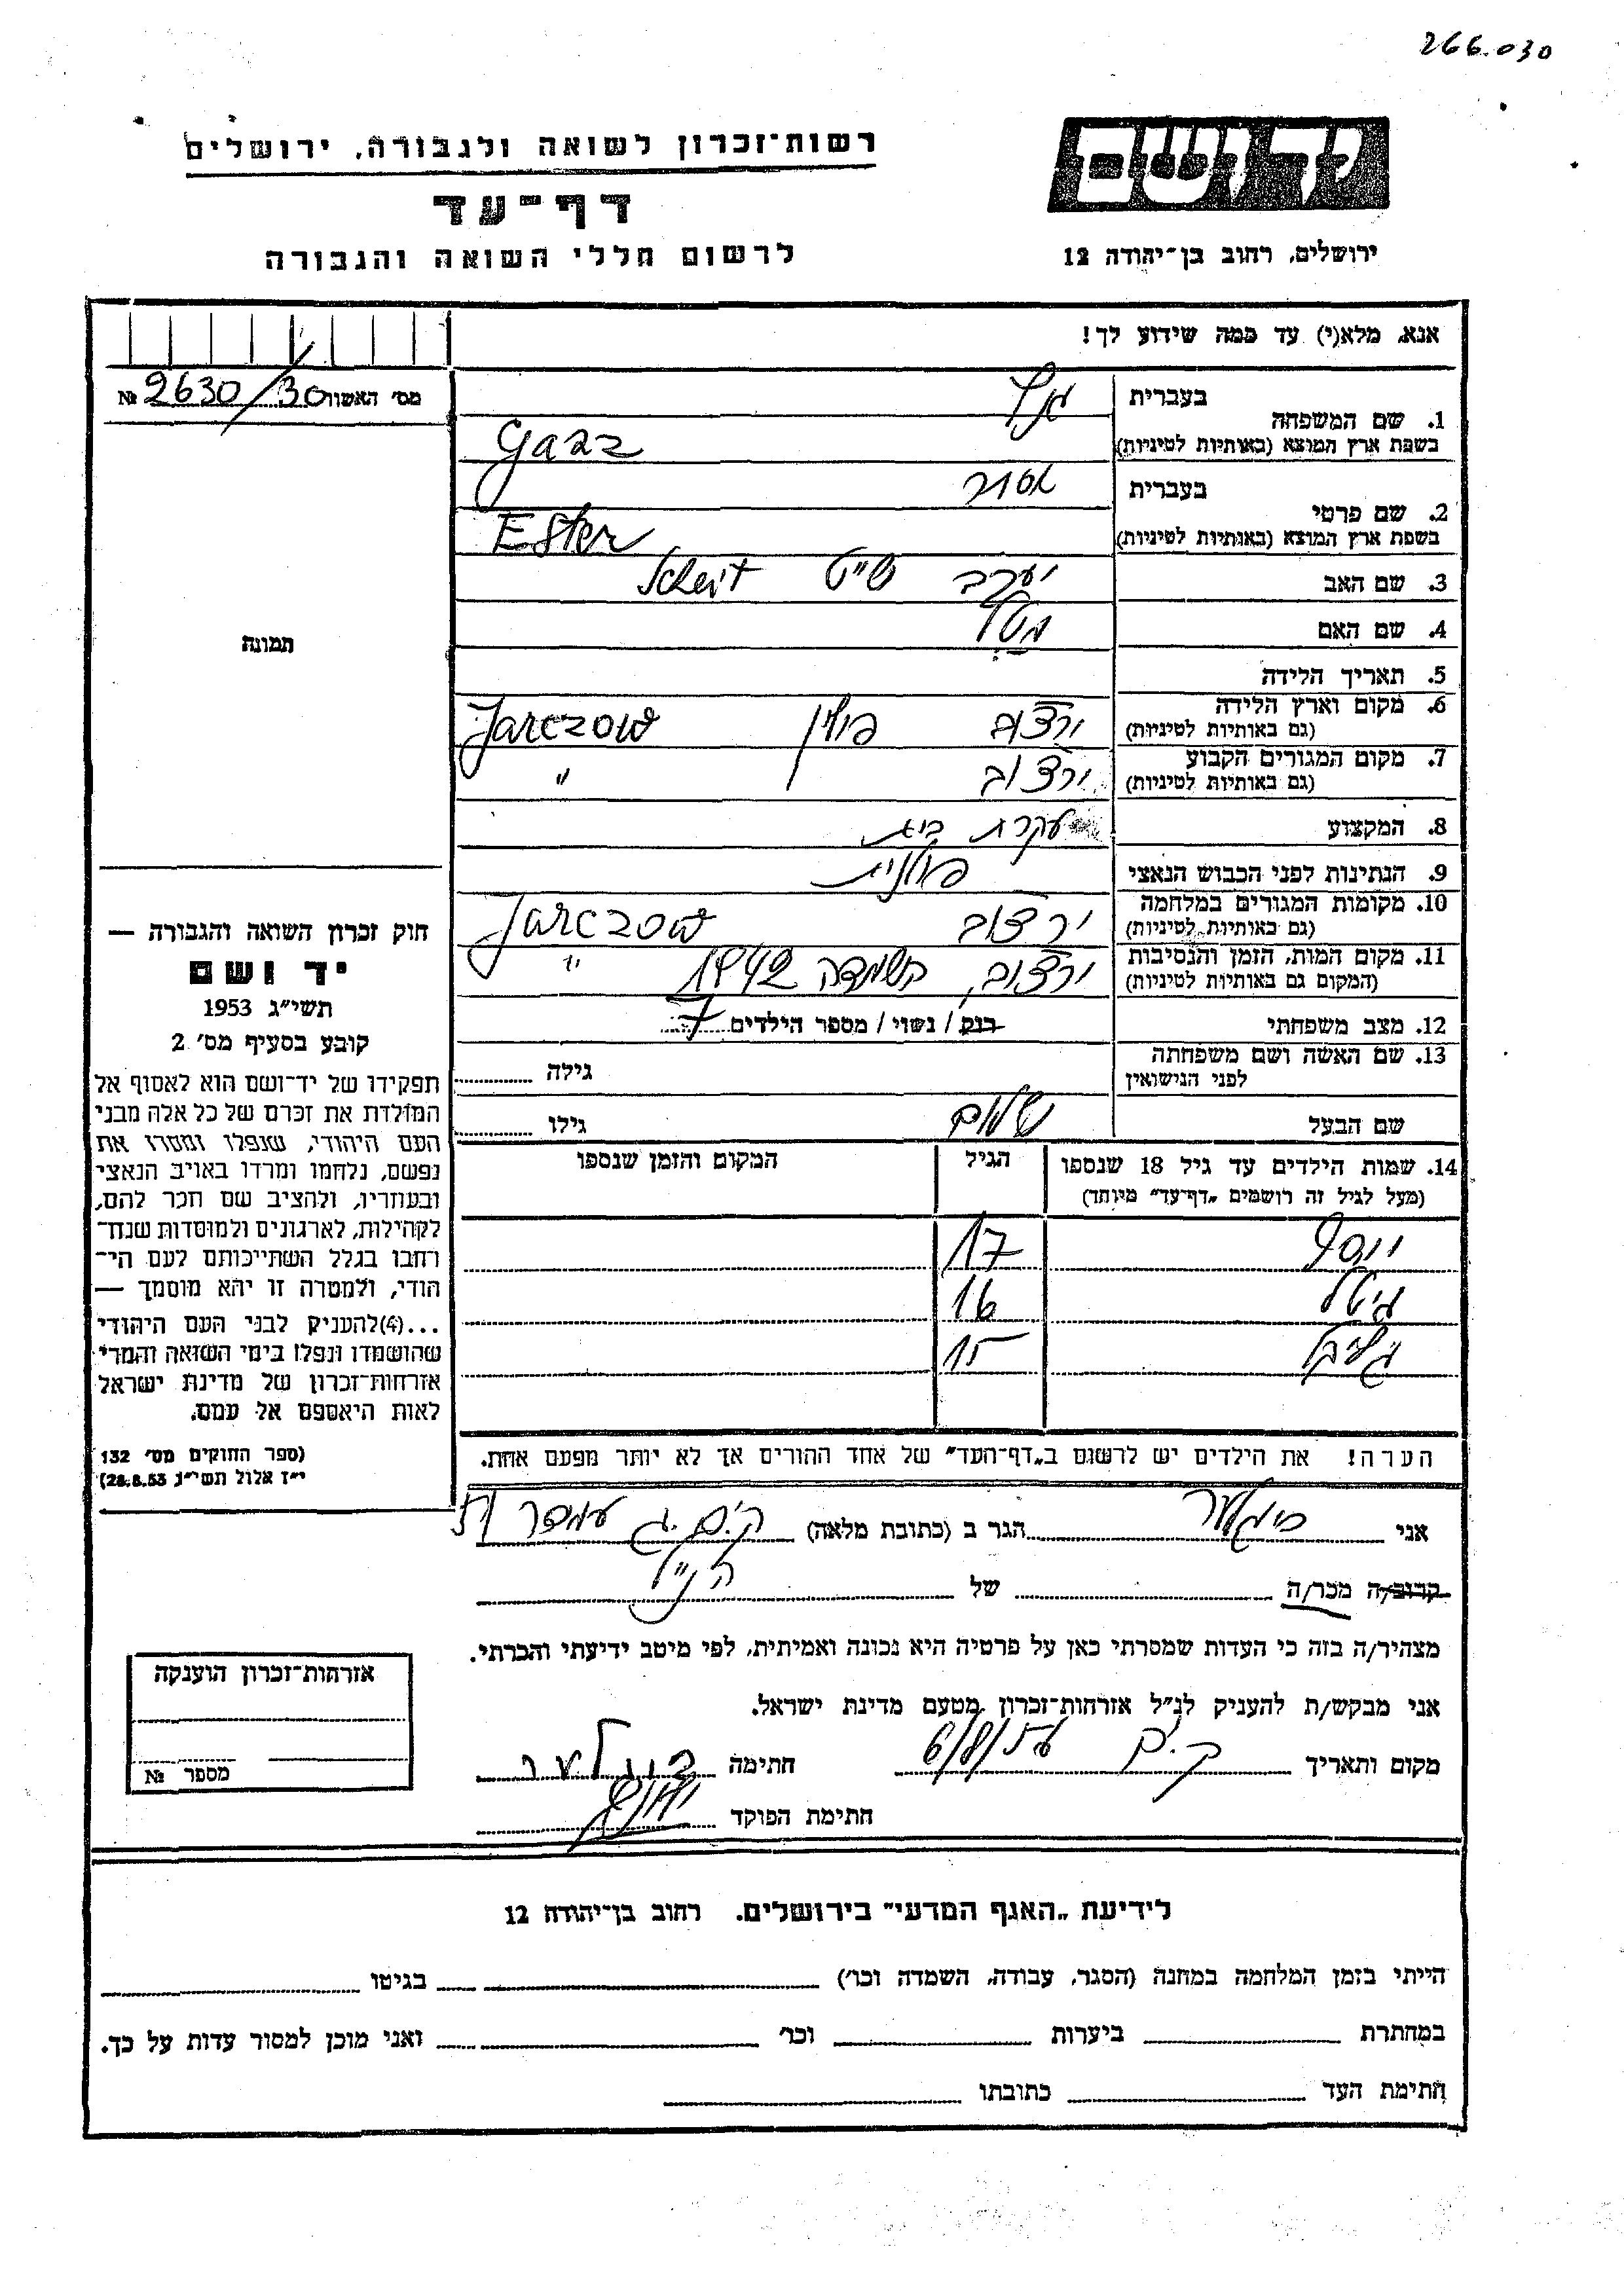 266.030
יד ושם
ירושלים, רחוב בן־יהודה 12
רשות־זכרון לשואה ולגבורה, ירושלים
דף־עד
לרשום חללי השואה והגבורה
אנא, מלא(י) עד כמה שידוע לך!
מס׳ האשור 2630/30 №
1. שם המשפחה
בעברית
בשפת ארץ המוצא (באותיות לטיניות)
Garz
2. שם פרטי
בעברית אסתר
בשפת ארץ המוצא (באותיות לטיניות)
Ester
3. שם האב יעקב שייט Scheit
4. שם האם
5. תאריך הלידה
6. מקום וארץ הלידה
(גם באותיות לטיניות)
ירצוב פולין Jarczow
7. מקום המגורים הקבוע
(גם באותיות לטיניות)
ירצוב "
8. המקצוע עקרת בית
9. הנתינות לפני הכבוש הנאצי פולנית
10. מקומות המגורים במלחמה
(גם באותיות לטיניות)
ירצוב Jarczow
11. מקום המות, הזמן והנסיבות
(המקום גם באותיות לטיניות)
ירצוב, השמדה 1942 "
12. מצב משפחתי
רווק / נשוי / מספר הילדים 7
13. שם האשה ושם משפחתה
לפני הנישואין
גילה
שם הבעל שלום גילו
14. שמות הילדים עד גיל 18 שנספו
(מעל לגיל זה רושמים „דף־עד” מיוחד)
הגיל
המקום והזמן שנספו
יוסף 17
גיטל 16
15
הערה! את הילדים יש לרשום ב„דף־העד” של אחד ההורים אך לא יותר מפעם אחת.
תמונה
חוק זכרון השואה והגבורה —
יד ושם
תשי״ג 1953
קובע בסעיף מס׳ 2
תפקידו של יד־ושם הוא לאסוף אל
המולדת את זכרם של כל אלה מבני
העם היהודי, שנפלו ומסרו את
נפשם, נלחמו ומרדו באויב הנאצי
ובעוזריו, ולהציב שם וזכר להם,
לקהילות, לארגונים ולמוסדות שנח־
רבו בגלל השתייכותם לעם הי־
הודי, ולמטרה זו יהא מוסמך —
...(4) להעניק לבני העם היהודי
שהושמדו ונפלו בימי השואה והמרי
אזרחות־זכרון של מדינת ישראל
לאות היאספם אל עמם.
(ספר החוקים מס׳ 132
י״ז אלול תשי״ג 28.8.53)
אני הגר ב (כתובת מלאה) ק.ים. ג עמידר
קרוב/ה מכר/ה של הנ״ל
מצהיר/ה בזה כי העדות שמסרתי כאן על פרטיה היא נכונה ואמיתית, לפי מיטב ידיעתי והכרתי.
אני מבקש/ת להעניק לנ״ל אזרחות־זכרון מטעם מדינת ישראל.
מקום ותאריך ק.ים 6/8/56 חתימה
חתימת הפוקד
אזרחות־זכרון הוענקה
מספר №
לידיעת „האגף המדעי” בירושלים. רחוב בן־יהודה 12
הייתי בזמן המלחמה במחנה (הסגר, עבודה, השמדה וכו׳) בגיטו
במחתרת ביערות וכו׳ ואני מוכן למסור עדות על כך.
חתימת העד כתובתו